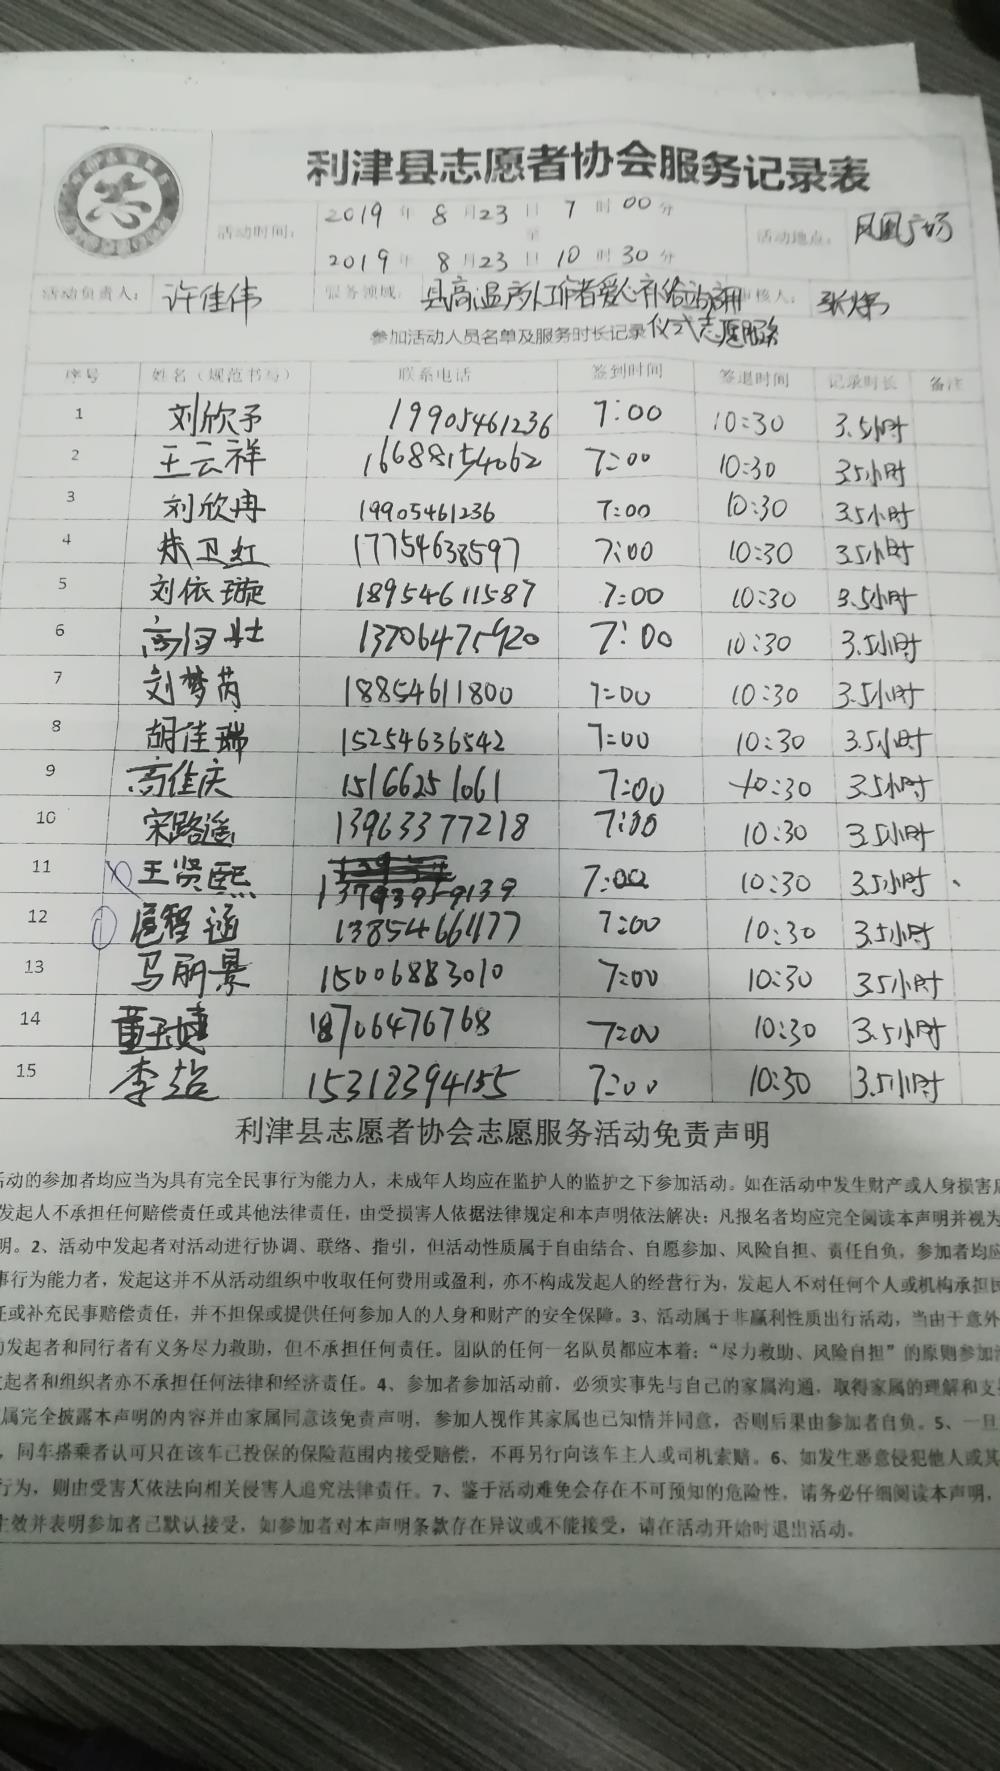 利津县志愿者协会服务记录表
活动时间: 2019年8月23日7时00分 至 2019年8月23日10时30分 活动地点: 凤凰广场
活动负责人: 许佳伟 服务领域: 县高温户外工作者爱心补给站 审核人:
参加活动人员名单及服务时长记录 仪式志愿服务
序号 姓名(规范书写) 联系电话 签到时间 签退时间 记录时长 备注
1 刘欣予 19905461236 7:00 10:30 3.5小时
2 王云祥 16688154062 7:00 10:30 3.5小时
3 刘欣冉 19905461236 7:00 10:30 3.5小时
4 朱卫红 17754638597 7:00 10:30 3.5小时
5 刘依璇 18954611587 7:00 10:30 3.5小时
6 13706475920 7:00 10:30 3.5小时
7 刘梦芮 18854611800 7:00 10:30 3.5小时
8 胡佳瑞 15254636542 7:00 10:30 3.5小时
9 高佳庆 15166251061 7:00 10:30 3.5小时
10 宋路遥 13963377218 7:00 10:30 3.5小时
11 王贤熙 13793959139 7:00 10:30 3.5小时
12 扈程涵 13854661177 7:00 10:30 3.5小时
13 马丽景 15006883010 7:00 10:30 3.5小时
14 18706476768 7:00 10:30 3.5小时
15 15312394155 7:00 10:30 3.5小时
利津县志愿者协会志愿服务活动免责声明
活动的参加者均应当为具有完全民事行为能力人，未成年人均应在监护人的监护之下参加活动。如在活动中发生财产或人身损害后
发起人不承担任何赔偿责任或其他法律责任，由受损害人依据法律规定和本声明依法解决；凡报名者均应完全阅读本声明并视为
明。2、活动中发起者对活动进行协调、联络、指引，但活动性质属于自由结合、自愿参加、风险自担、责任自负，参加者均应
事行为能力者，发起这并不从活动组织中收取任何费用或盈利，亦不构成发起人的经营行为，发起人不对任何个人或机构承担民
任或补充民事赔偿责任，并不担保或提供任何参加人的人身和财产的安全保障。3、活动属于非赢利性质出行活动，当由于意外
的发起者和同行者有义务尽力救助，但不承担任何责任。团队的任何一名队员都应本着：“尽力救助、风险自担”的原则参加活
发起者和组织者亦不承担任何法律和经济责任。4、参加者参加活动前，必须实事先与自己的家属沟通，取得家属的理解和支
属完全披露本声明的内容并由家属同意该免责声明，参加人视作其家属也已知情并同意，否则后果由参加者自负。5、一旦
，同车搭乘者认可只在该车已投保的保险范围内接受赔偿，不再另行向该车主人或司机索赔。6、如发生恶意侵犯他人或其
行为，则由受害人依法向相关侵害人追究法律责任。7、鉴于活动难免会存在不可预知的危险性，请务必仔细阅读本声明，
生效并表明参加者已默认接受，如参加者对本声明条款存在异议或不能接受，请在活动开始时退出活动。